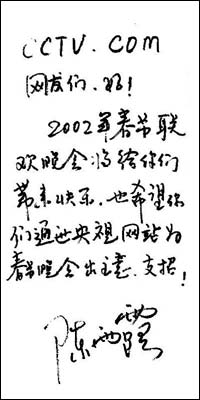 CCTV.COM
网友们.好!
2002年春节联
欢晚会将给你们
带来快乐.也希望你
们通过央视网站为
春节晚会出主意.支招!
陈雨露